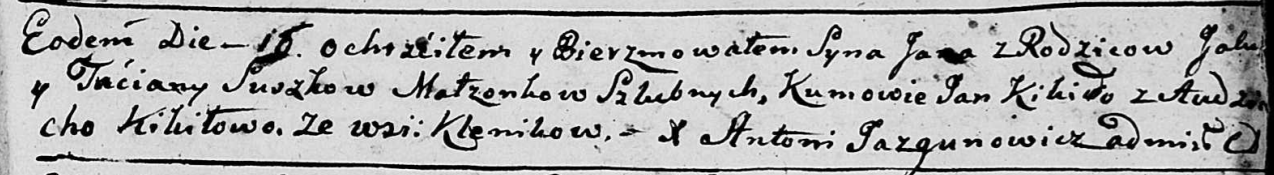 Eodem Die – 18. ochrzciłem y Bierzmowałem Syna Jana z Rodzicow
y Taciany Suszkow Małzonkow Szlubnych, Kumowie Jan Kikiło z
cho Kikiłowo. Ze wsi: Klenikow. – X Antoni Jazgunowicz admi: